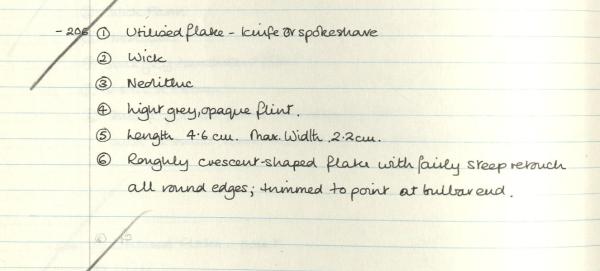 - 206 ① Utilised flake - knife or spokeshave
② Wick
③ Neolithic
④ Light grey, opaque flint.
⑤ Length 4.6 cm. Max. Width 2.2 cm.
⑥ Roughly crescent-shaped flake with fairly steep retouch
all round edges; trimmed to point at bulbar end.